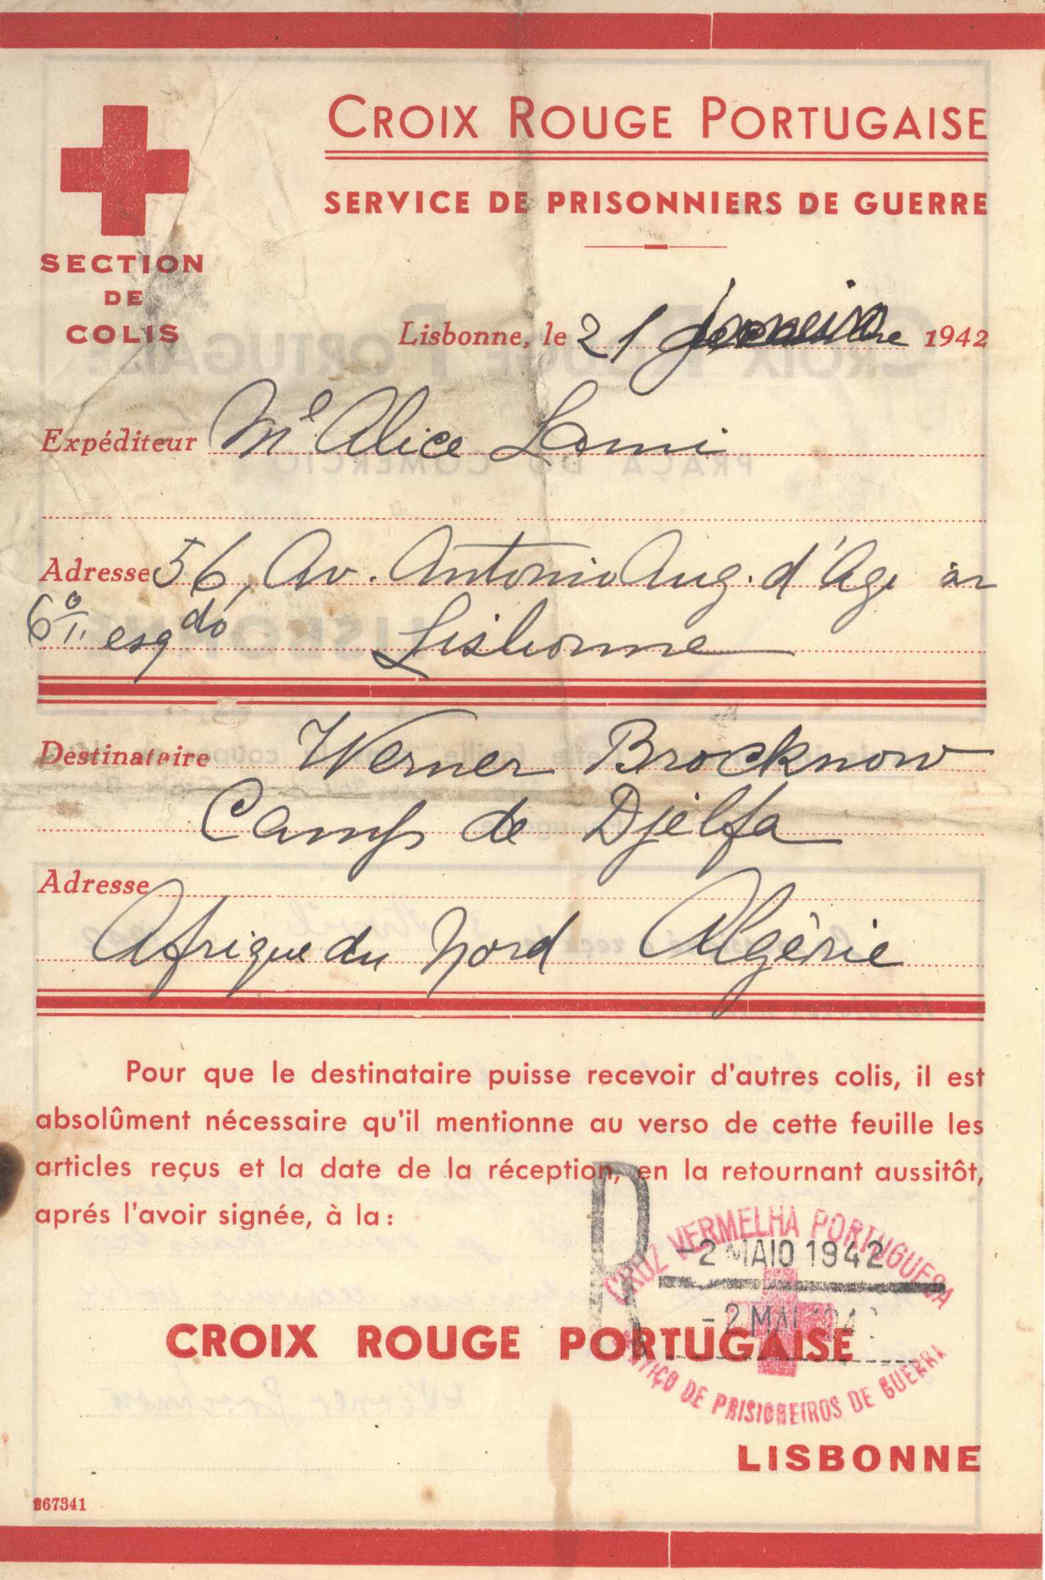 CROIX ROUGE PORTUGAISE
SERVICE DE PRISONNIERS DE GUERRE
SECTION
DE
COLIS
Lisbonne, le 21 Janeiro 1942
Expéditeur Mᵉ Alice Lami
Adresse 56, Av. Antonio Aug. d'Agiar
6º esqdo Lisbonne
Destinataire Werner Brocknow
Camp de Djelfa
Adresse
Afrique du Nord Algérie
Pour que le destinataire puisse recevoir d'autres colis, il est
absolûment nécessaire qu'il mentionne au verso de cette feuille les
articles reçus et la date de la réception, en la retournant aussitôt,
aprés l'avoir signée, à la:
R
CRUZ VERMELHA PORTUGUESA
-2 MAIO 1942
-2 MAI
CROIX ROUGE PORTUGAISE
DE PRISIONEIROS DE GUERRA
LISBONNE
867341